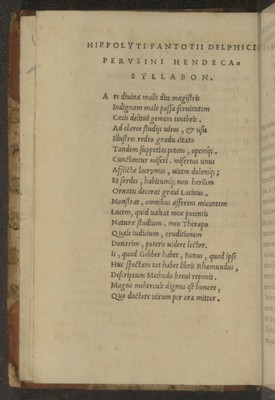 HIPPOLYTI FANTOTII DELPHICI
PERVSINI HENDECA-
SYLLABON.
A rs diuina malis diu magistris
Indignam male passa seruitutem
Cæcis delituit gemens tenebris.
Ad claros studijs uiros, & usu
Illustres redeo gradu citato
Tandem suppetias petens, opemq́;.
Cunctantur miseri. misertus unus
Afflictæ lacrymis, uicem dolensq́;;
Et sordes, habitumq́; non herilem
Ornatu decorat graui Lacinus.
Monstrat, omnibus afferens micantem
Lucem, quid ualeat mea potentis
Naturæ studium. meo Therapo
Quale iudicium, eruditionem
Donarim, poteris uidere lector.
Is, quod Gebber habet, Bonus, quod ipse
Huc spectans tot habet libris Rhamundus,
Descriptum Methodo breui reponit.
Magno mehercule dignus est honore,
Quo doctore uirum per ora mittor.